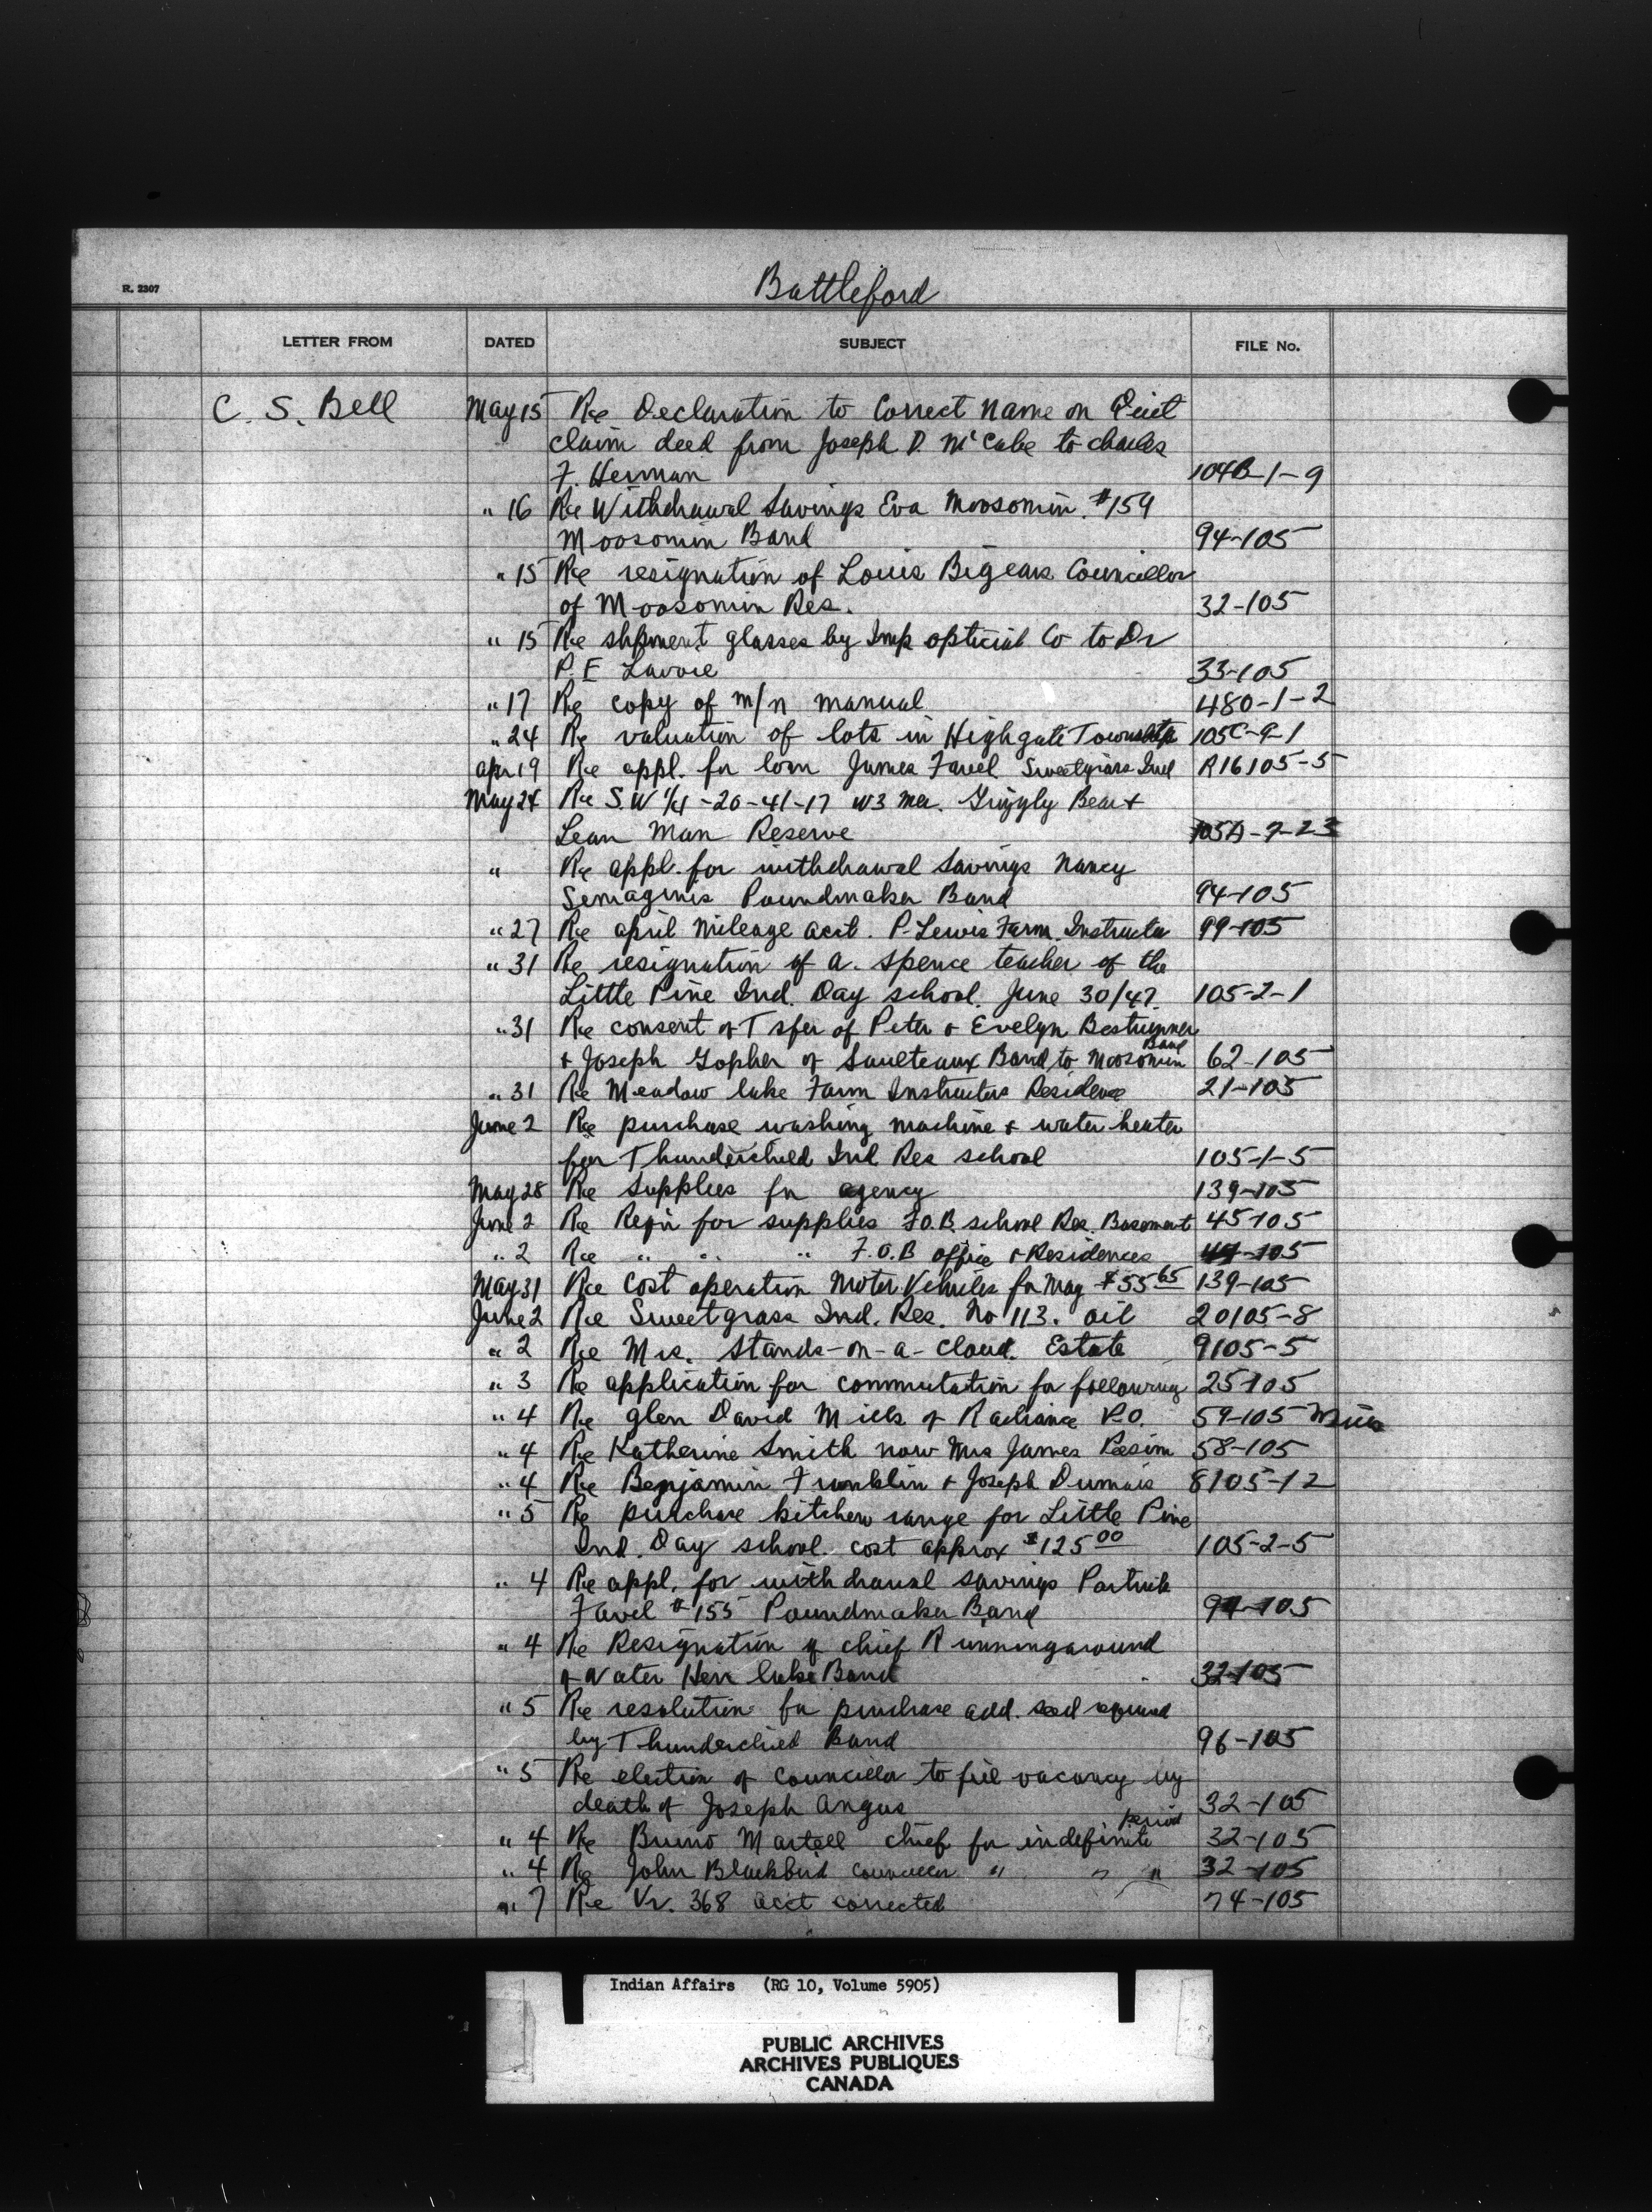 Battleford
R. 2307
LETTER FROM DATED SUBJECT FILE No.
C. S. Bell May 15 Re Declaration to Correct name on Quit
claim deed from Joseph D. McCabe to Charles
F. Herman 104B-1-9
" 16 Re Withdrawal Savings Eva Moosomin #159
Moosomin Band 94-105
" 15 Re resignation of Louis Bigears Councillor
of Moosomin Res. 32-105
" 15 Re shpment glasses by Imp optical Co to Dr
P. E Lavoie 33-105
" 17 Re copy of m/n manual 480-1-2
" 24 Re valuation of lots in Highgate Township 105C-9-1
Apr 19 Re appl. for loan James Favel Sweetgrass Ind R16105-5
May 24 Re S.W 1/4-20-41-17 W3 Mer. Grizzly Bear +
Lean Man Reserve 105A-7-23
" Re appl. for withdrawal Savings Nancy
Semaginis Poundmaker Band 94-105
" 27 Re april mileage acct. P. Lewis Farm. Instructor 99-105
" 31 Re resignation of A. Spence teacher of the
Little Pine Ind. Day school. June 30/47. 105-2-1
" 31 Re consent of Tsfer of Peter & Evelyn
+ Joseph Gopher of Saulteaux Band to Moosomin Band 62-105
" 31 Re Meadow lake Farm Instructors Residence 21-105
June 2 Re purchase washing machine + water heater
for Thunderchild Ind Res school 105-1-5
May 28 Re Supplies for agency 139-105
June 2 Re Reqn for supplies F.O.B. school Res. Basement 45-105
" 2 Re " " " F.O.B office + Residences -105
May 31 Re Cost operation Motor Vehicles for May $55 65 139-105
June 2 Re Sweetgrass Ind. Res. No 113. oil 20105-8
" 2 Re Mrs. Stands-on-a-Cloud. Estate 9105-5
" 3 Re application for commutation for following 25-105
" 4 Re Glen David Mills of Radiance P.O. 59-105
" 4 Re Katherine Smith now Mrs James Pesim 58-105
" 4 Re Benjamin Franklin + Joseph Dumais 8105-12
" 5 Re purchase kitchen range for Little Pine
Ind. Day school. cost approx $125 00 105-2-5
" 4 Re appl. for withdrawal savings Patrick
Favel #155 Poundmaker Band 94-105
" 4 Re Resignation of chief Runningaround
of Water Hen lake Band 32-105
" 5 Re resolution for purchase add. seed required
by Thunderchild Band 96-105
" 5 Re election of Councillor to fill vacancy by
death of Joseph Angus 32-105
" 4 Re Bruno Martell chief for indefinite period 32-105
" 4 Re John Blackbird Councillor " " " 32-105
" 7 Re Vr. 368 acct corrected 74-105
Indian Affairs (RG 10, Volume 5905)
PUBLIC ARCHIVES
ARCHIVES PUBLIQUES
CANADA